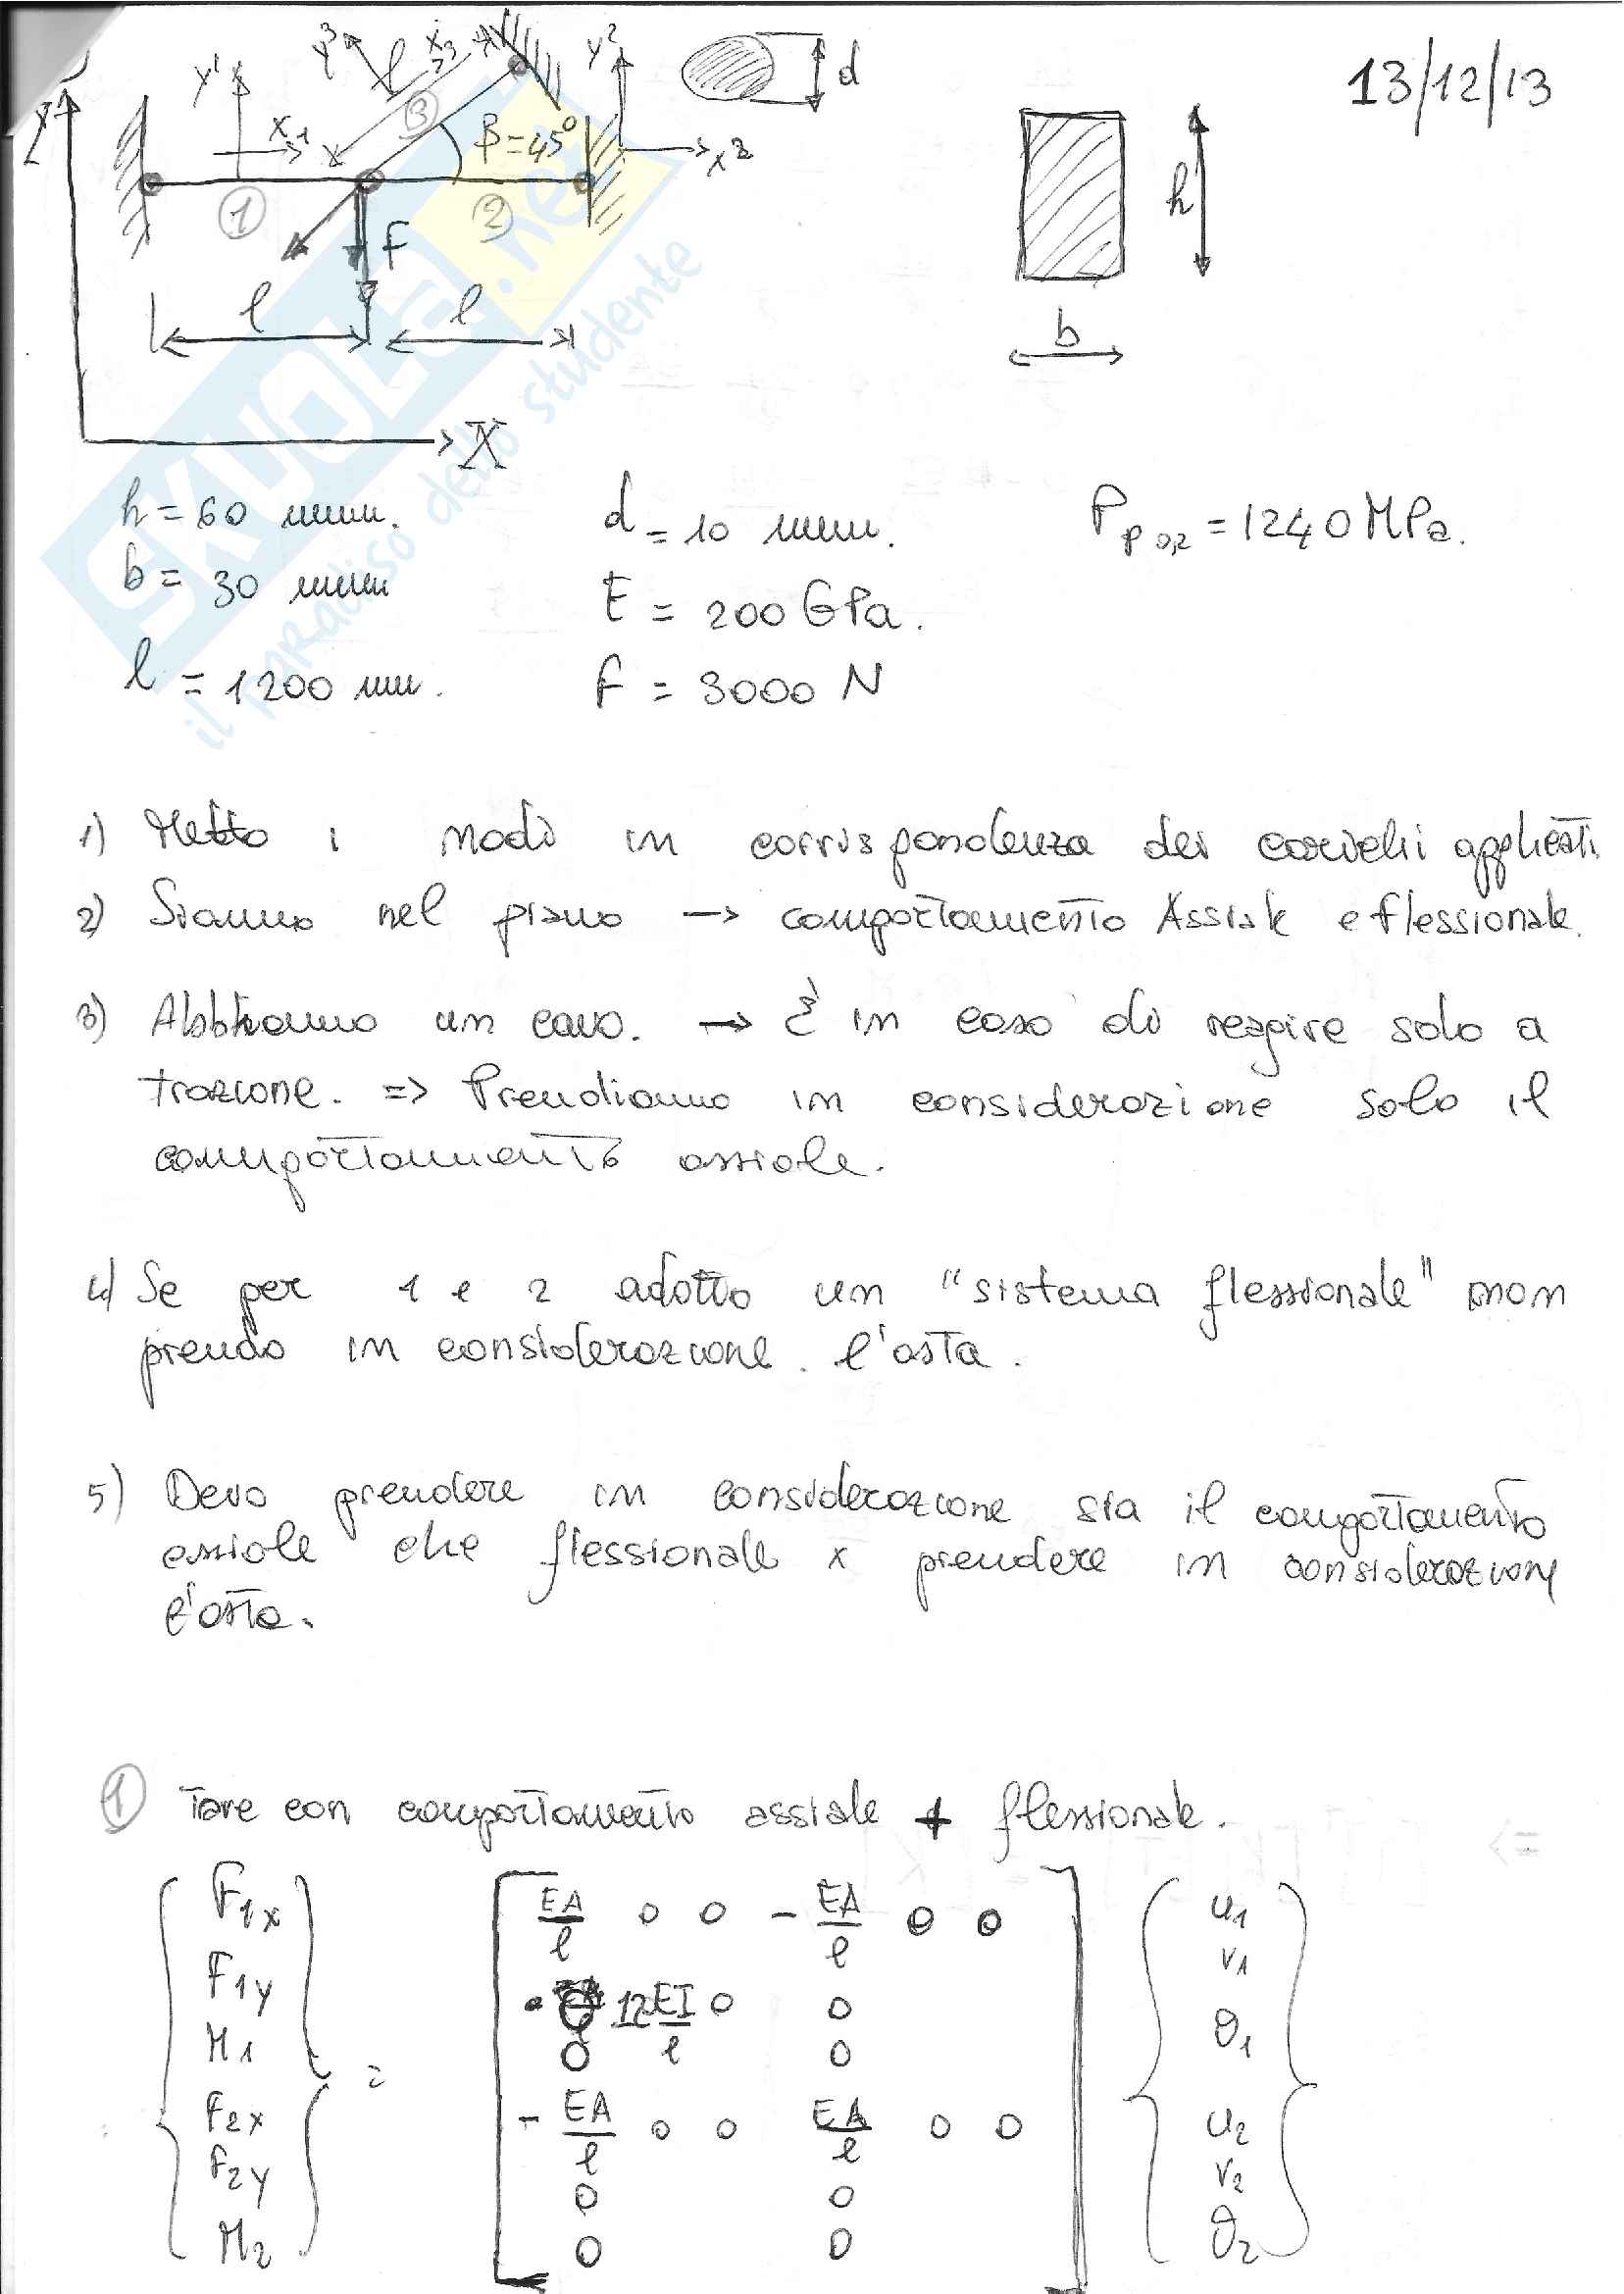 13/12/13
Y
y¹
y³
l
x₃
y²
d
x₁
3
β=45°
x²
1
2
F
l
l
X
h
b
SKUOLA.net
il paradiso dello studente
h = 60 mm.
d = 10 mm.
R p 0,2 = 1240 MPa.
b = 30 mm
E = 200 GPa.
l = 1200 mm.
F = 3000 N
1) Metto i nodi in corrispondenza dei carichi applicati.
2) Siamo nel piano → comportamento Assiale e flessionale.
3) Abbiamo un cavo. → È in caso di reagire solo a
trazione. => Prendiamo in considerazione solo il
comportamento assiale.
4) Se per 1 e 2 adotto un "sistema flessionale" non
prendo in considerazione. l'asta.
5) Devo prendere in considerazione sia il comportamento
assiale che flessionale x prendere in considerazione
l'asta.
① Trave con comportamento assiale + flessionale.
F1x EA/l 0 0 - EA/l 0 0 u1
F1y 0 12EI/l 0 0 v1
M1 = 0 0 θ1
F2x - EA/l 0 0 EA/l 0 0 u2
F2y 0 0 v2
M2 0 0 θ2